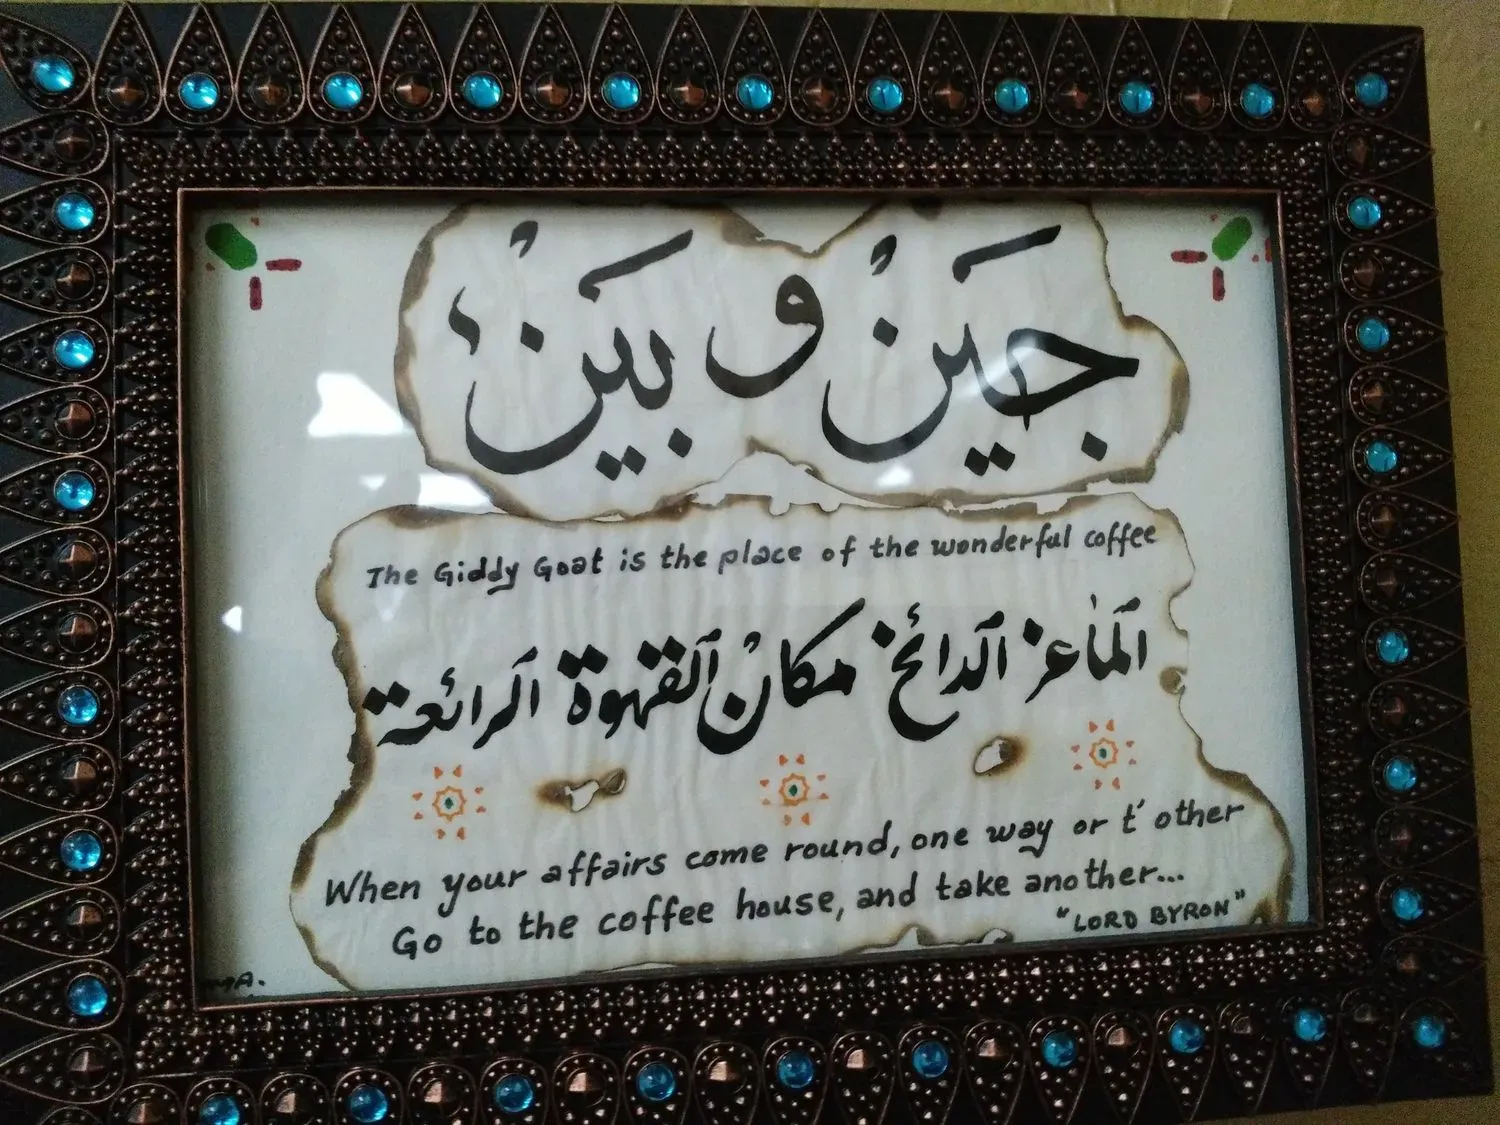 جين و بين
The Giddy Goat is the place of the wonderful coffee
الماعز الدائخ مكان القهوة الرائعة
When your affairs come round, one way or t' other
Go to the coffee house, and take another...
"LORD BYRON"
MA.